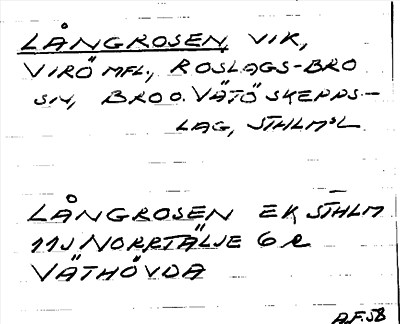 LÅNGROSEN, VIK,
VIRÖ MFL, ROSLAGS-BRO
SN, BRO O. VÄTÖ SKEPPS-
LAG, STHLMS L
LÅNGROSEN EK STHLM
11J NORRTÄLJE 6 e
VÄTHÖVDA
A.F.58